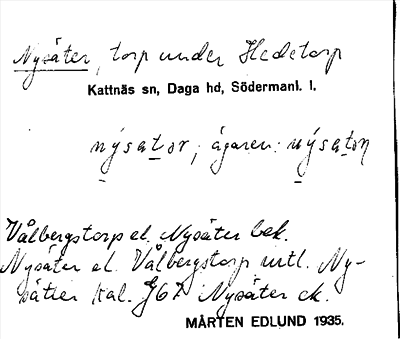 Nysäter, torp under Hedetorp
Kattnäs sn, Daga hd, Södermanl. l.
nýsatər, ägaren: nýsatən
Vålbergstorp el. Nysäter bek.
Nysäter el. Vålbergstorp urtl. Ny-
säter kal. J67 Nysäter ek.
MÅRTEN EDLUND 1935.